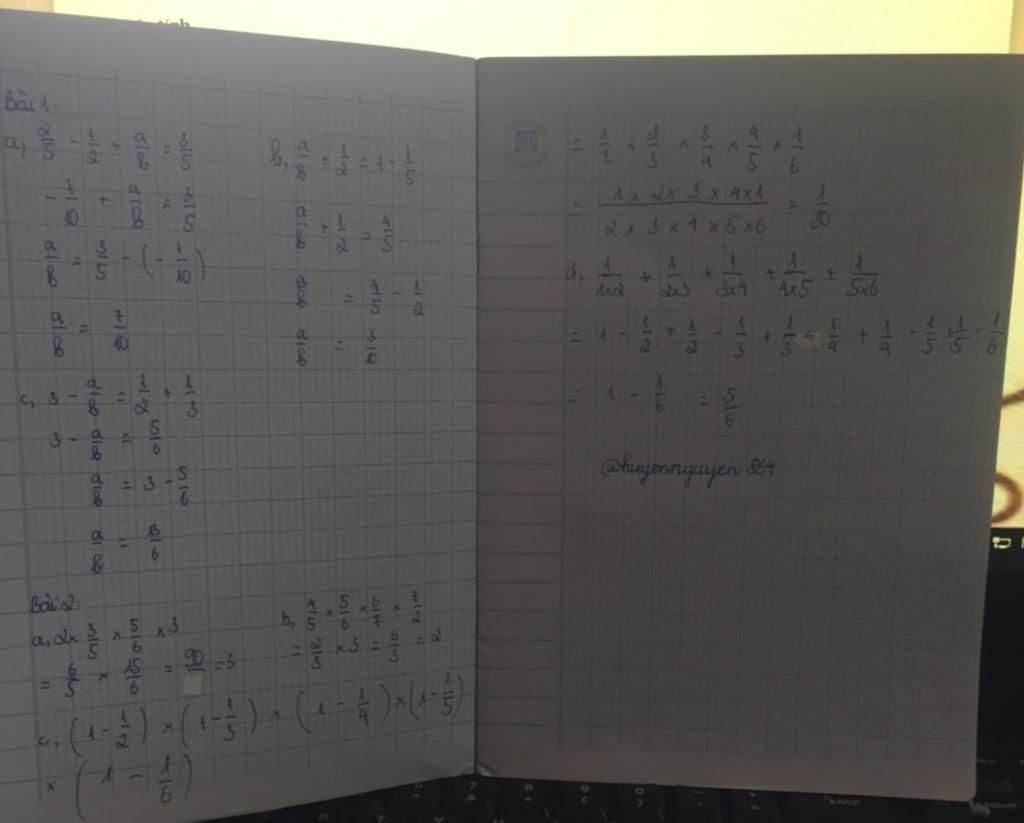 Bài 1:
a, 2/5 - 1/2 + a/b = 3/5
-1/10 + a/b = 3/5
a/b = 3/5 - (-1/10)
a/b = 7/10
b, a/b + 1/2 = 1 - 1/5
a/b + 1/2 = 4/5
a/b = 4/5 - 1/2
a/b = 3/10
c, 3 - a/b = 1/2 + 1/3
3 - a/b = 5/6
a/b = 3 - 5/6
a/b = 13/6
Bài 2:
a, 2 × 3/5 × 5/6 × 3
= 6/5 × 15/6 = 90 = 3
b, 4/5 × 5/6 × 6/7 × 7/2
= 2/3 × 3 = 6/3 = 2
c, (1 - 1/2) × (1 - 1/3) × (1 - 1/4) × (1 - 1/5)
× (1 - 1/6)
= 1/2 × 2/3 × 3/4 × 4/5 × 1/6
= 1 × 2 × 3 × 4 × 1 / 2 × 3 × 4 × 5 × 6 = 1/30
d, 1/1×2 + 1/2×3 + 1/3×4 + 1/4×5 + 1/5×6
= 1 - 1/2 + 1/2 - 1/3 + 1/3 - 1/4 + 1/4 - 1/5 + 1/5 - 1/6
= 1 - 1/6 = 5/6
@huyennguyen864